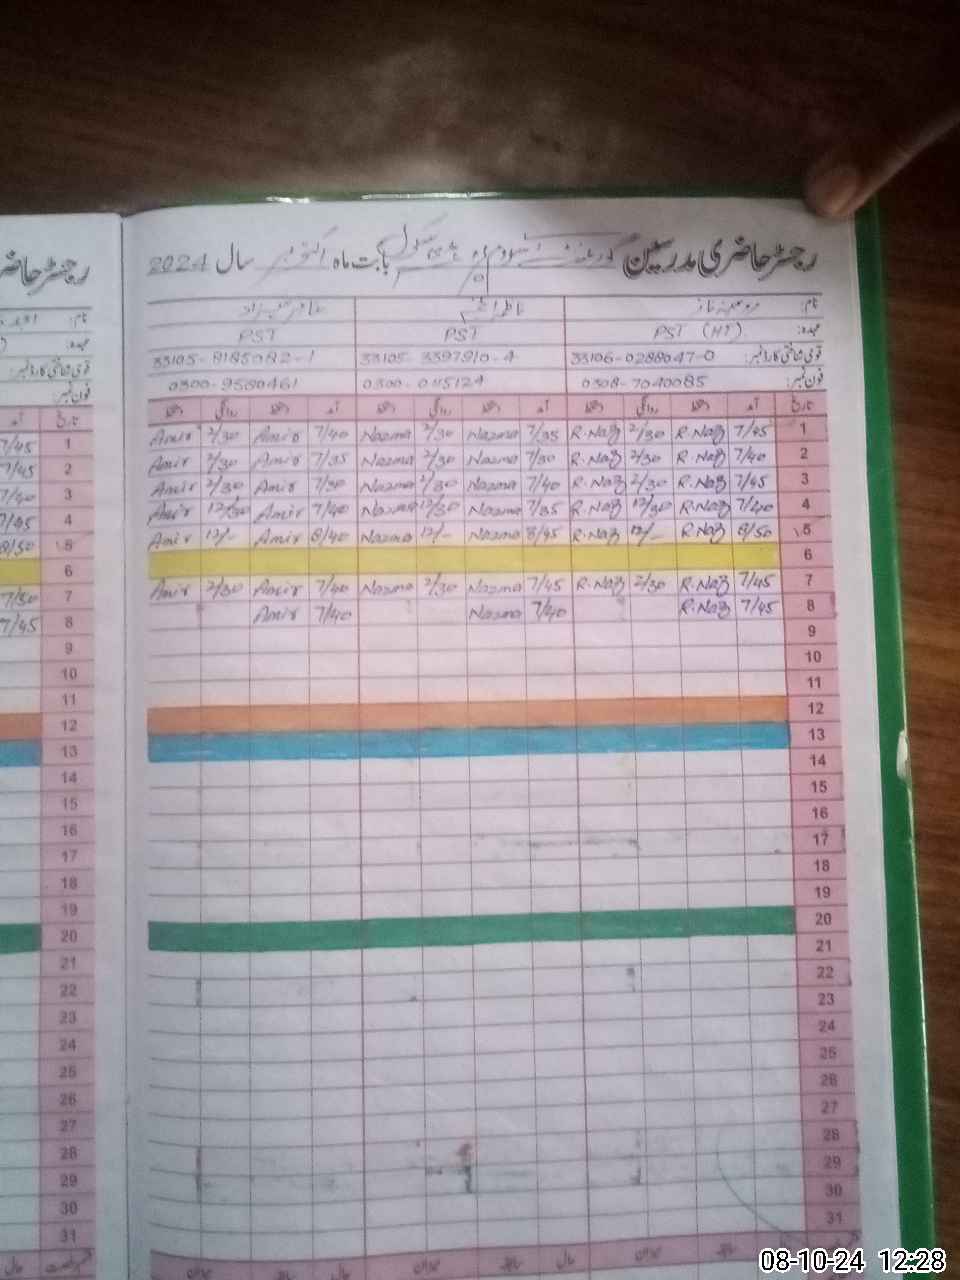 رجسٹر حاضری مدرسین گورنمنٹ سکول بابت ماہ اکتوبر سال 2024
رجسٹر حاضر
نام:
نام:
عہدہ: PST (HT) PST PST
عہدہ:
قومی شناختی کارڈ نمبر: 33106-0288047-0 33105-3397910-4 33105-8185082-1
قومی شناختی کارڈ نمبر:
فون نمبر: 0308-7040085 0300-0115124 0300-9580461
فون نمبر:
تاریخ آمد دستخط روانگی دستخط آمد دستخط روانگی دستخط آمد دستخط روانگی دستخط
تاریخ آمد
1 7/45 R.Naz 2/30 R.Naz 7/35 Nazma 2/30 Nazma 7/40 Amir 2/30 Amir
1 7/45
2 7/40 R.Naz 2/30 R.Naz 7/30 Nazma 2/30 Nazma 7/35 Amir 2/30 Amir
2 7/45
3 7/45 R.Naz 2/30 R.Naz 7/40 Nazma 2/30 Nazma 7/30 Amir 2/30 Amir
3 7/40
4 7/40 R.Naz 12/30 R.Naz 7/35 Nazma 12/30 Nazma 7/40 Amir 12/30 Amir
4 7/45
5 8/50 R.Naz 12/- R.Naz 8/45 Nazma 12/- Nazma 8/40 Amir 12/- Amir
5 8/50
6
6
7 7/45 R.Naz 2/30 R.Naz 7/45 Nazma 2/30 Nazma 7/40 Amir 2/30 Amir
7 7/50
8 7/45 R.Naz 7/40 Nazma 7/40 Amir
8 7/45
9
9
10
10
11
11
12
12
13
13
14
14
15
15
16
16
17
17
18
18
19
19
20
20
21
21
22
22
23
23
24
24
25
25
26
26
27
27
28
28
29
29
30
30
31
31
08-10-24 12:28